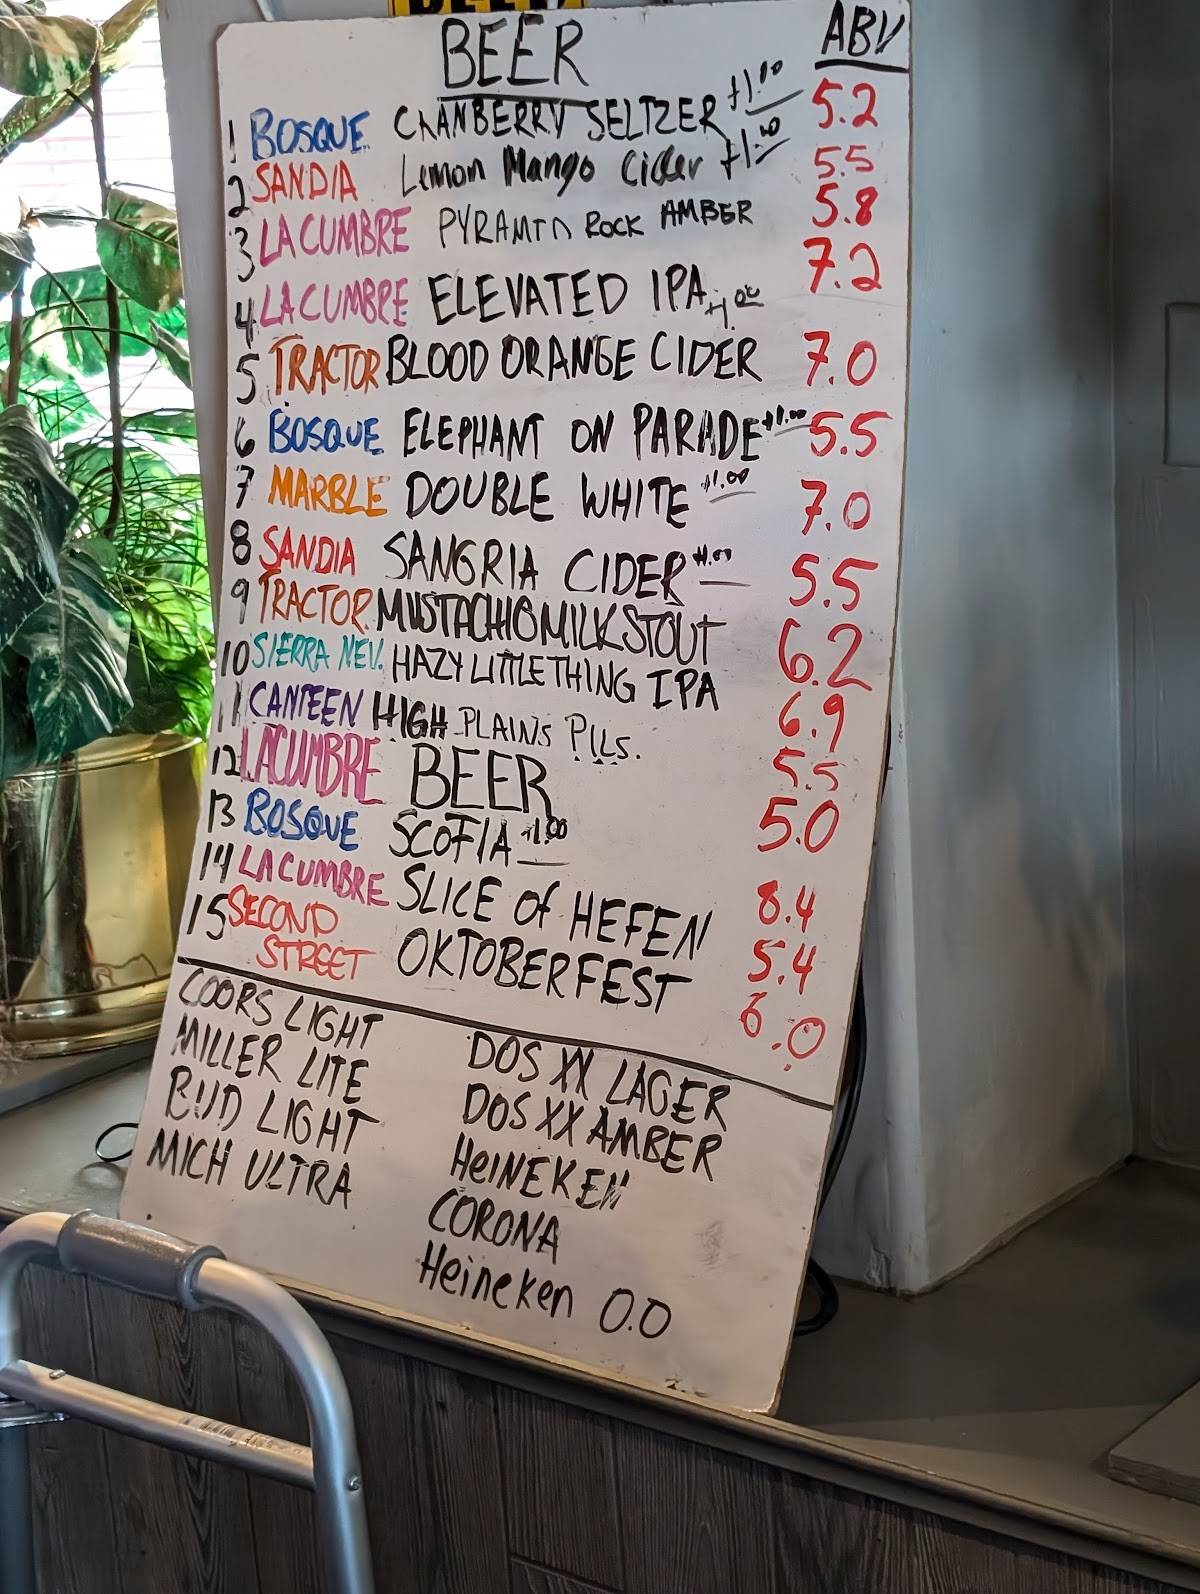 BEER ABV
1 BOSQUE CRANBERRY SELTZER +1.00 5.2
2 SANDIA Lemon Mango Cider +1.00 5.5
3 LA CUMBRE PYRAMID ROCK AMBER 5.8
4 LA CUMBRE ELEVATED IPA +1.00 7.2
5 TRACTOR BLOOD ORANGE CIDER 7.0
6 BOSQUE ELEPHANT ON PARADE +1.00 5.5
7 MARBLE DOUBLE WHITE +1.00 7.0
8 SANDIA SANGRIA CIDER +1.00 5.5
9 TRACTOR MUSTACHIO MILK STOUT 6.2
10 SIERRA NEV. HAZY LITTLE THING IPA 6.9
11 CANTEEN HIGH PLAINS PILS. 5.5
12 LA CUMBRE BEER 5.0
13 BOSQUE SCOTIA +1.00 8.4
14 LA CUMBRE SLICE of HEFEN 5.4
15 SECOND STREET OKTOBERFEST 6.0
COORS LIGHT
MILLER LITE
BUD LIGHT
MICH ULTRA
DOS XX LAGER
DOS XX AMBER
HEINEKEN
CORONA
Heineken 0.0